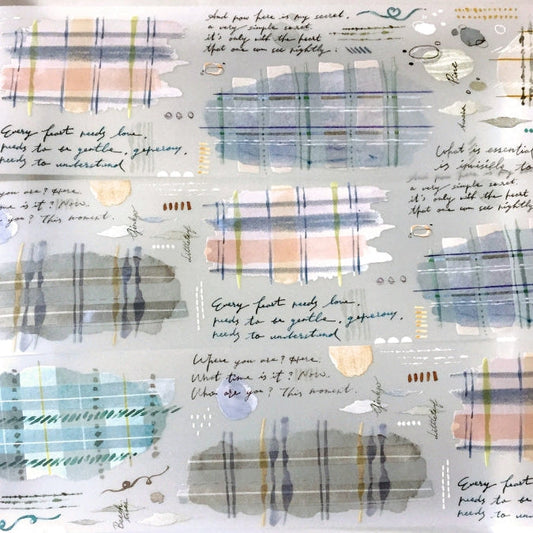 And now here is my secret,
a very simple secret.
it's only with the heart
that one can see rightly.
Pine
Acacia
Every heart needs love,
needs to be gentle, generous,
needs to understand
What is essential
is invisible to
And now here is my secret.
a very simple secret.
it's only with the heart
that one can see rightly
you are? Here.
time is it? Now.
you? This moment.
Ginkgo
Littleleaf
Every heart needs love,
needs to be gentle, generous,
needs to understand
Where you are? Here.
What time is it? Now.
Who are you? This moment.
Ginkgo
Littleleaf
Every heart
needs to be
needs to un
Beech